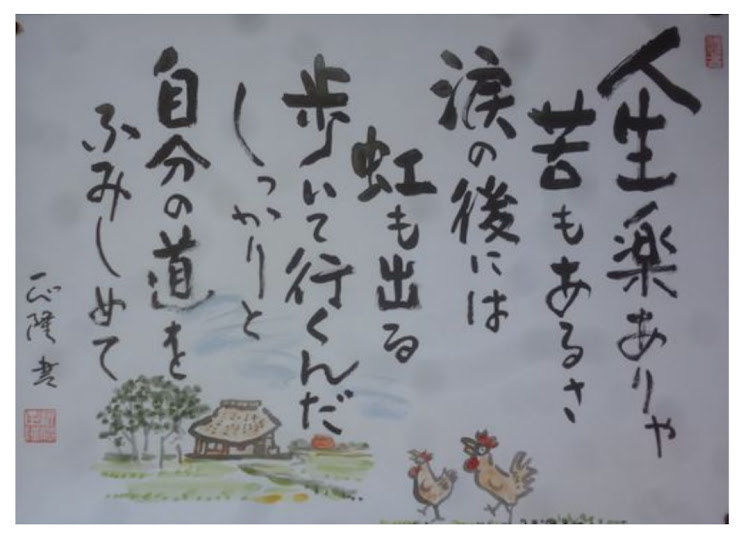 人生楽ありゃ
苦もあるさ
涙の後には
虹も出る
歩いて行くんだ
しっかりと
自分の道を
ふみしめて